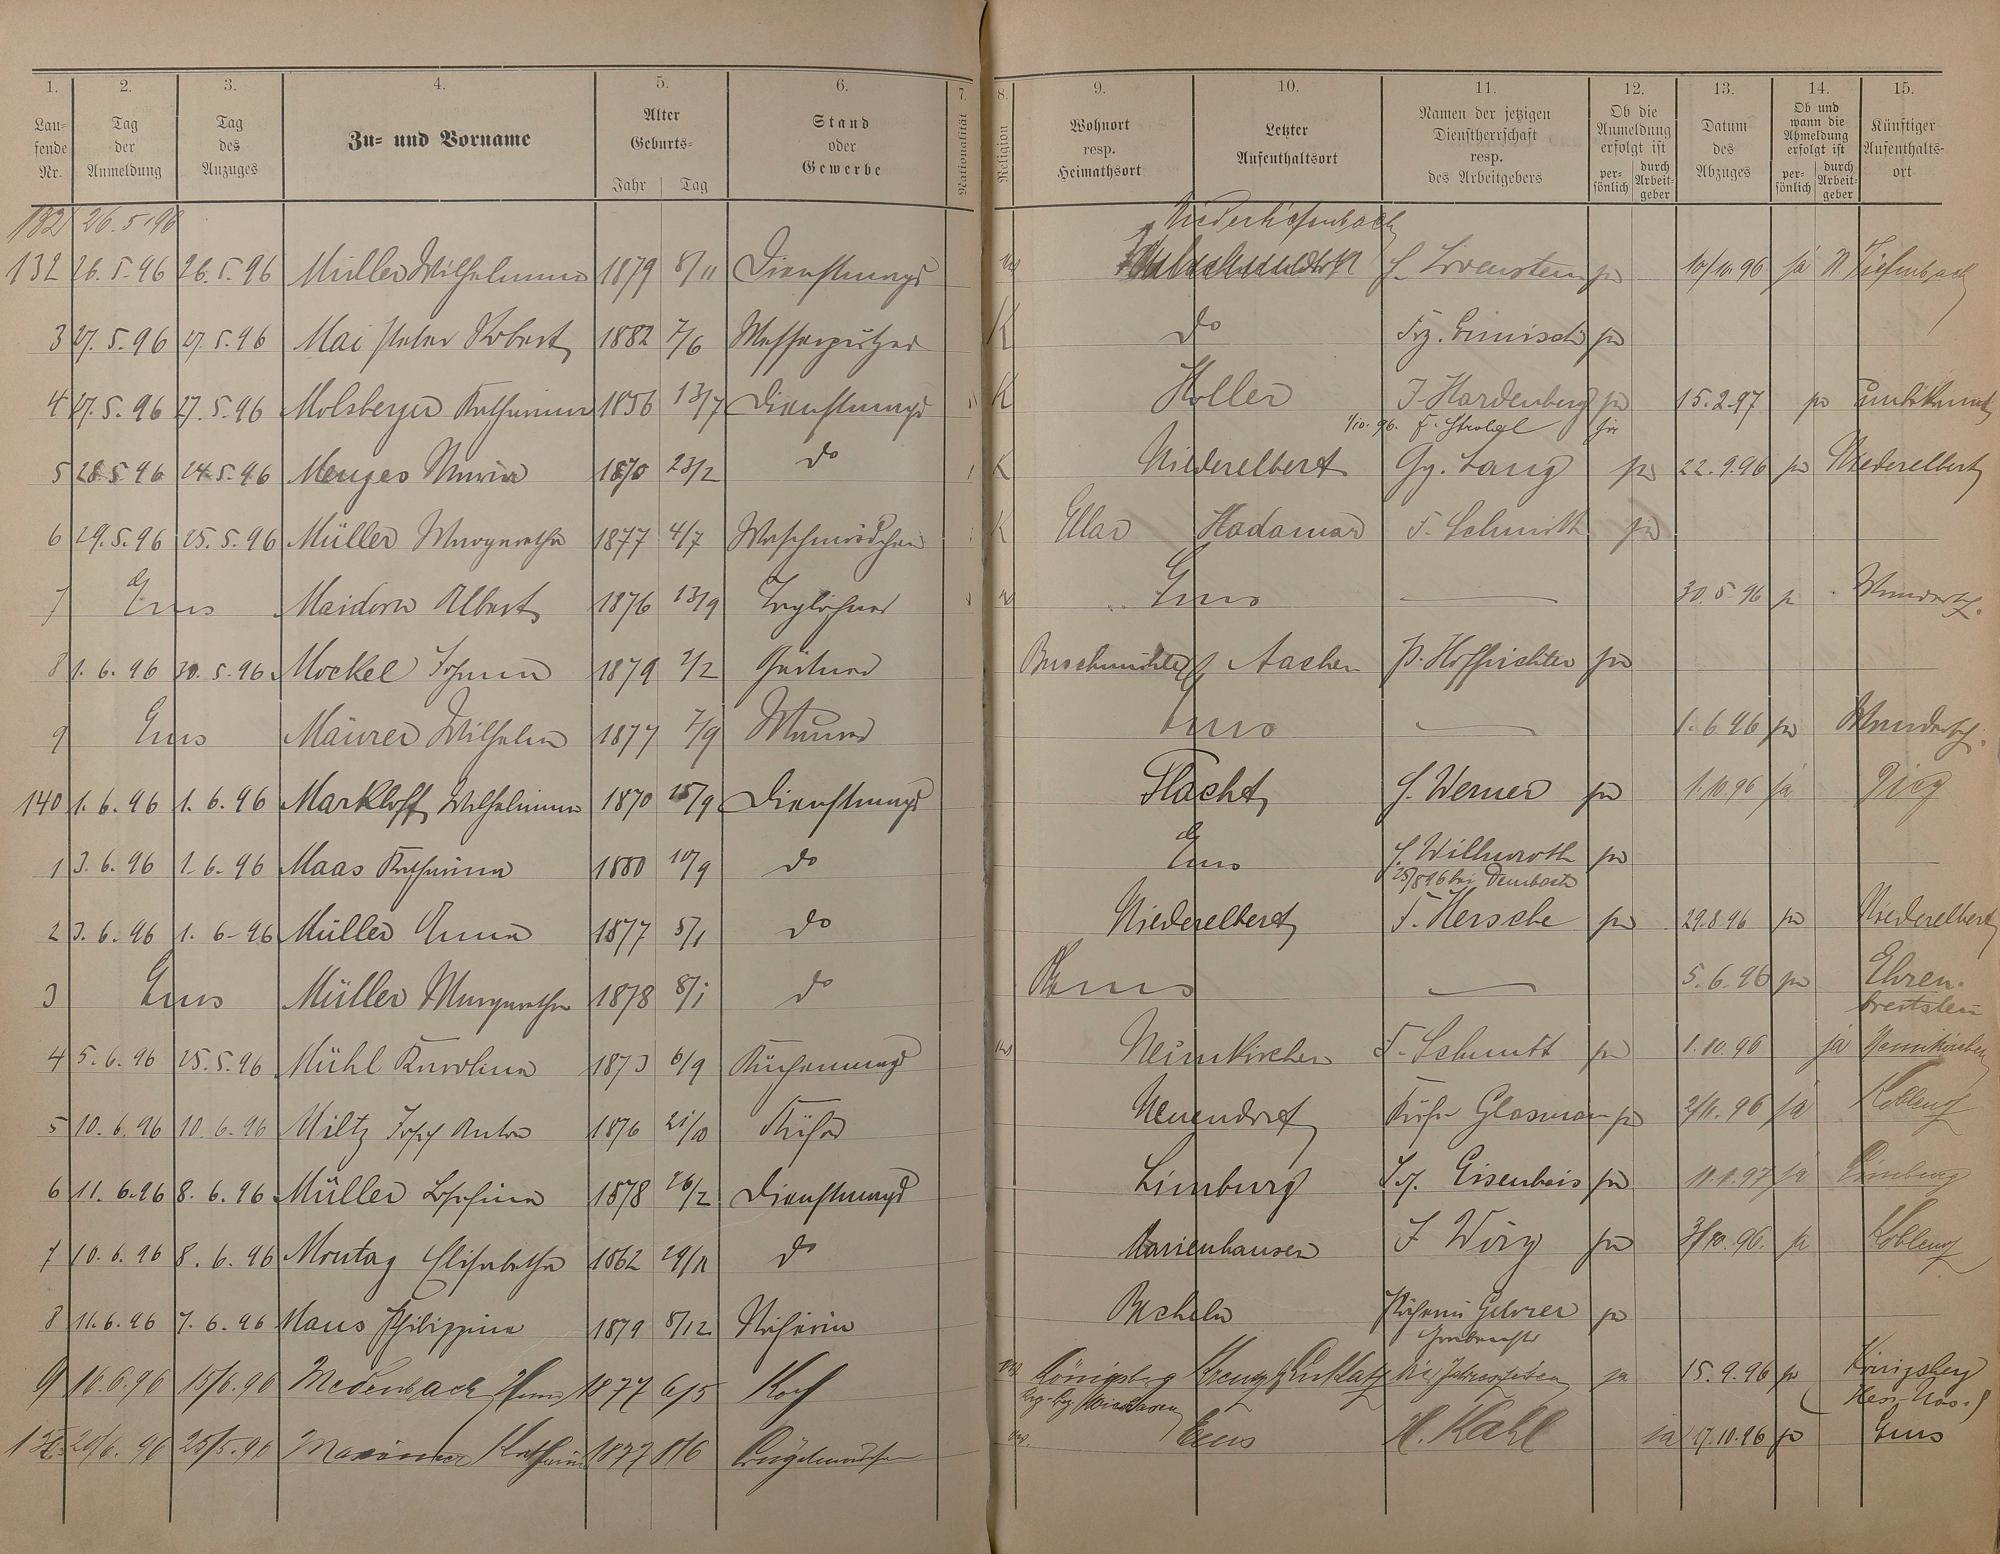 1. 2. 3. 4. 5. 6. 7. 8. 9. 10. 11. 12. 13. 14. 15.
Laufende Nr. Tag der Anmeldung Tag des Anzuges Zu- und Vorname Alter Geburts- Jahr Tag Stand oder Gewerbe Nationalität Religion Wohnort resp. Heimathsort Letzter Aufenthaltsort Namen der jetzigen Dienstherrschaft resp. des Arbeitgebers Ob die Anmeldung erfolgt ist persönlich durch Arbeitgeber Datum des Abzuges Ob und wann die Abmeldung erfolgt ist persönlich durch Arbeitgeber Künftiger Aufenthaltsort
26.5.96 Niedertiefenbach
132 26.5.96 26.5.96 Müller Wilhelmine 1879 8/11 Dienstmagd H. Löwenstein ja 10/10.96 ja N. Tiefenbach
3 27.5.96 27.5.96 Mai Peter Robert 1882 7/6 Messerputzer K do Frz. ja
4 27.5.96 27.5.96 Molsberger Katharina 1856 13/7 Dienstmagd K Holler J. Hardenberg ja 15.2.97 ja Unbekannt
1/10.96. F. Strobel
5 28.5.96 24.5.96 Menges Maria 1870 23/2 do K Niederelbert Gg. Lang ja 22.9.96 ja Niederelbert
6 29.5.96 25.5.96 Müller Margaretha 1877 4/7 Waschmädchen K Ellar Hadamar F. Schmitt ja
7 Ems Maidorn Albert 1876 13/9 Taglöhner Ems — 30.5.96 ja Wandersch.
8 1.6.96 30.5.96 Mockel Johann 1879 2/2 Gärtner Buschmühle Aachen P. Hoffrichter ja
9 Ems Mäurer Wilhelm 1877 7/9 Maurer Ems — 1.6.96 ja Wandersch.
140 1.6.96 1.6.96 Markloff Wilhelmine 1870 15/9 Dienstmagd Flacht H. Werner ja 1.10.96 ja
1 3.6.96 1.6.96 Maas Katharina 1880 10/9 do Ems H. Willmroth ja
25/8 96 bei Dembach
2 3.6.96 1.6.96 Müller Anna 1877 5/1 do Niederelbert F. Hersche ja 29.8.96 ja Niederelbert
3 Ems Müller Margaretha 1878 8/1 do Ems — 5.6.96 ja Ehrenbreitstein
4 5.6.96 25.5.96 Mühl Karoline 1873 6/9 Küchenmagd Neunkirchen F. Schmitt ja 1.10.96 ja Neunkirchen
5 10.6.96 10.6.96 Miltz Josef Anton 1876 21/10 Küfer Neuendorf Küfer Glasmann ja 2/11.96 ja Koblenz
6 11.6.96 8.6.96 Müller Josefina 1878 26/2 Dienstmagd Limburg Eisenbeis ja 11.1.97 ja Limburg
7 10.6.96 8.6.96 Montag Elisabetha 1862 29/11 do Marienhausen J Wirg ja 3/10.96. ja Koblenz
8 11.6.96 7.6.96 Maus Philippine 1879 8/12. Näherin Becheln Gehrer ja
9 16.6.96 15/6.96 Medenbach 1877 6/5 Koch Königsberg Vier Jahreszeiten ja 15.9.96 ja Königsberg
Wiesbaden Hess. Nass.)
20/6.96 25/5.96 Katharina 1877 8/6 Bügelmädchen Ems H. Kahl ja 17.10.96 ja Ems